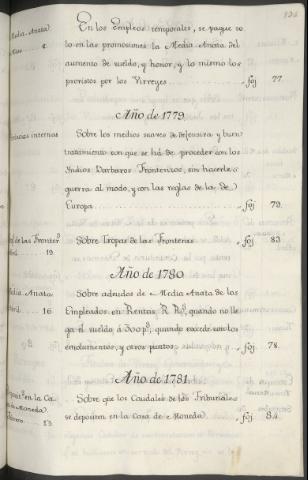 En los Empleos temporales, se pague so
lo en las promociones la Media Anata del
aumento de sueldo, y honor, y lo mismo los
provistos por los Virreyes foj 77.
Año de 1779
Sobre los medios suaves de defensiva y buen
tratamiento con que se há de proceder con los
Indios Barbaros Fronterisos, sin hacerles
guerra al modo, y con las reglas de la de
Europa foj 79.
Sobre Tropas de las Fronteras foj 83
Año de 1780
Media Anata
16
Sobre adeudos de Media Anata de los
Empleados en Rentas R.
ga el sueldo á 300 p.s, quando excede con los
emolumentos, y otros puntos. foj 78.
Año de 1781
Sobre que los Caudales de los Tribunales
se depositen en la Casa de Moneda. foj 84